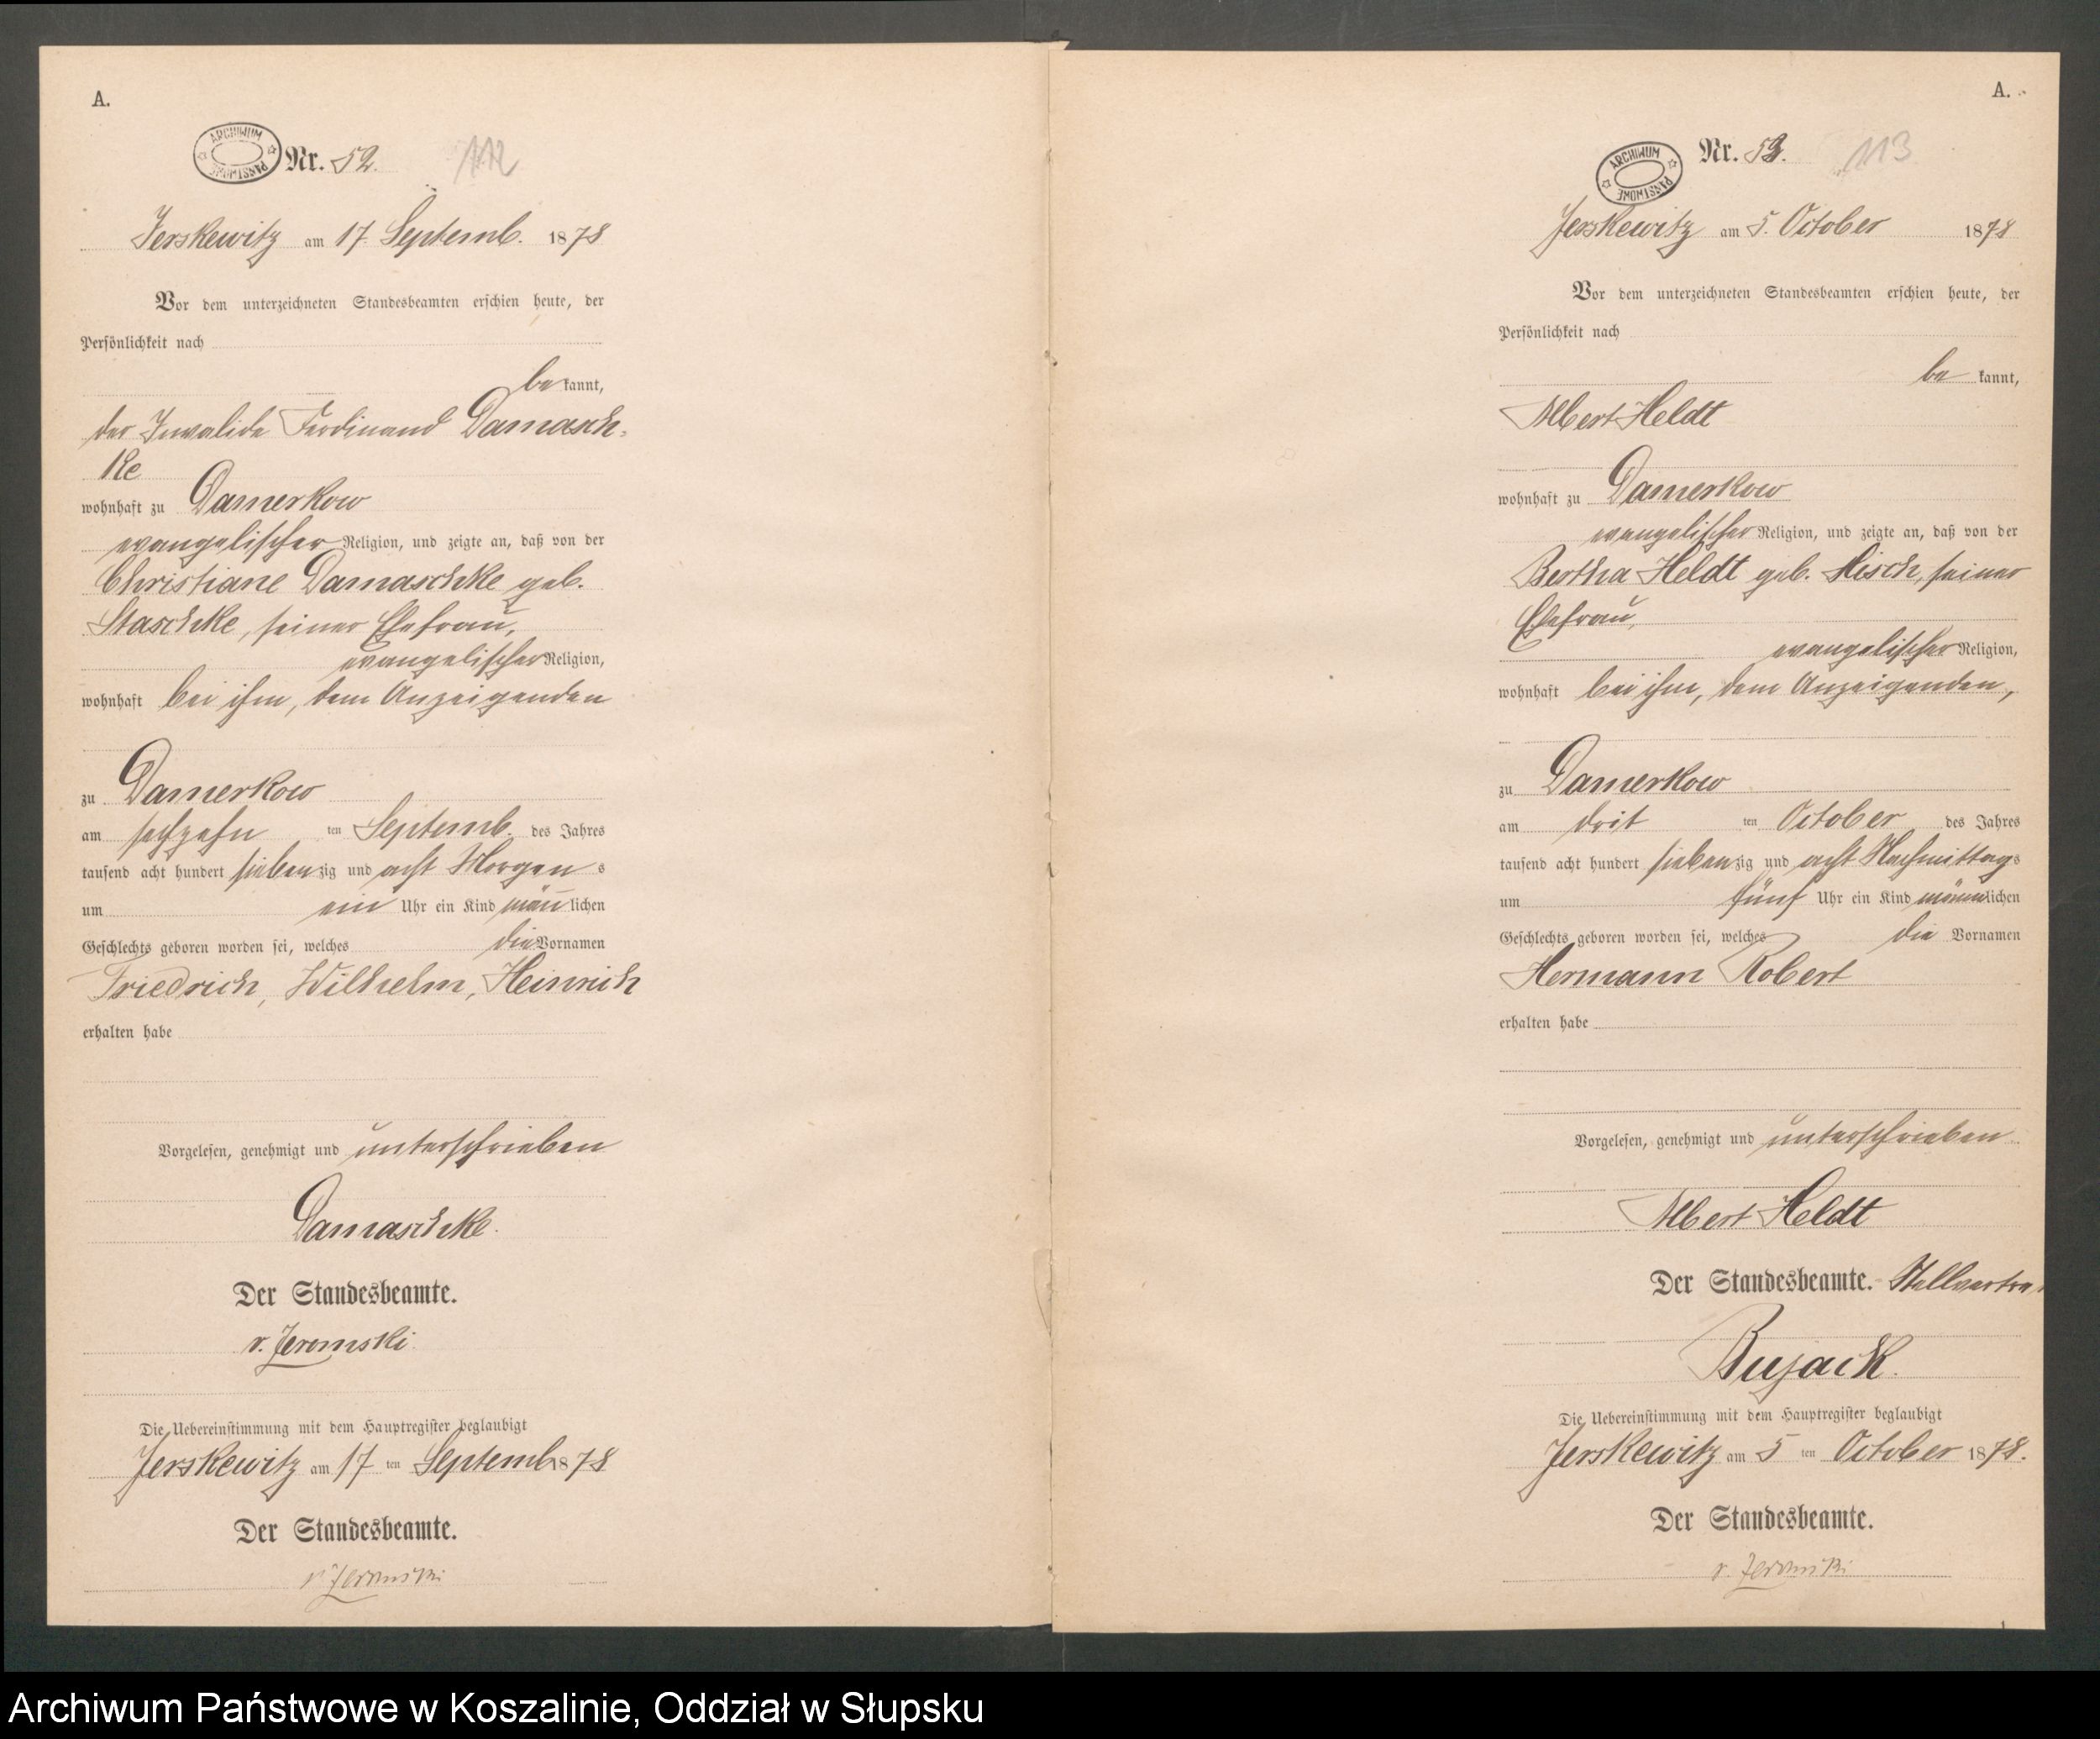 A.
ARCHIWUM PAŃSTWOWE
Nr. 52.
112
Jerskewitz am 17. Septemb. 1878
Vor dem unterzeichneten Standesbeamten erschien heute, der
Persönlichkeit nach
bekannt,
der Invalide Ferdinand Damasch-
ke
wohnhaft zu Damerkow
evangelischer Religion, und zeigte an, daß von der
Christiane Damaschke geb.
Staschke, seiner Ehefrau,
evangelischer Religion,
wohnhaft bei ihm, dem Anzeigenden
zu Damerkow
am sechzehn ten Septemb. des Jahres
tausend acht hundert siebenzig und acht Morgens
um ein Uhr ein Kind männlichen
Geschlechts geboren worden sei, welches die Vornamen
Friedrich, Wilhelm, Heinrich
erhalten habe
Vorgelesen, genehmigt und unterschrieben
Damaschke.
Der Standesbeamte.
v. Jeromski.
Die Uebereinstimmung mit dem Hauptregister beglaubigt
Jerskewitz am 17 ten Septemb 1878
Der Standesbeamte.
v. Jeromski
A.
ARCHIWUM PAŃSTWOWE
Nr. 53.
113
Jerskewitz am 5. October 1878
Vor dem unterzeichneten Standesbeamten erschien heute, der
Persönlichkeit nach
bekannt,
Albert Heldt
wohnhaft zu Damerkow
evangelischer Religion, und zeigte an, daß von der
Bertha Heldt geb. Misch, seiner
Ehefrau,
evangelischer Religion,
wohnhaft bei ihm, dem Anzeigenden,
zu Damerkow
am drit ten October des Jahres
tausend acht hundert siebenzig und acht Nachmittags
um fünf Uhr ein Kind männlichen
Geschlechts geboren worden sei, welches die Vornamen
Hermann Robert
erhalten habe
Vorgelesen, genehmigt und unterschrieben
Albert Heldt
Der Standesbeamte. Stellvertre
Bujack.
Die Uebereinstimmung mit dem Hauptregister beglaubigt
Jerskewitz am 5 ten October 1878.
Der Standesbeamte.
v. Jeromski
Archiwum Państwowe w Koszalinie, Oddział w Słupsku